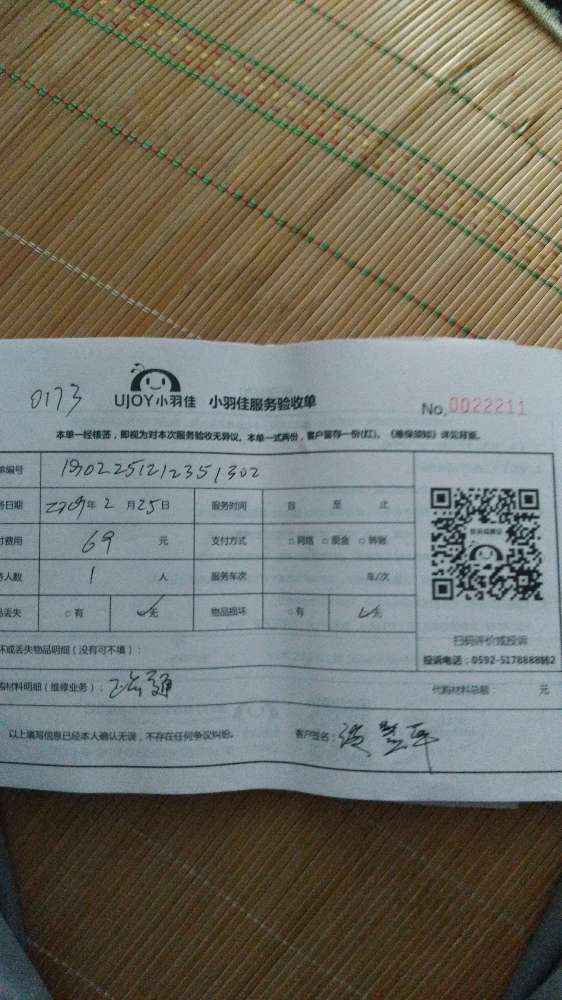 0173
UJOY小羽佳 小羽佳服务验收单
No. 0022211
本单一经核签，即视为对本次服务验收无异议。本单一式两份，客户留存一份(红)。《维保须知》详见背面。
单编号 1902251212351302
务日期 2019年2月25日 服务时间 自 至 止
付费用 69 元 支付方式 □网络 □现金 □转账
务人数 1 人 服务车次 车/次
品丢失 □有 ✓无 物品损坏 □有 ✓无
坏或丢失物品明细（没有可不填）：
购材料明细（维修业务）： 通
代购材料总额： 元
以上填写信息已经本人确认无误，不存在任何争议纠纷。 客户签名：
扫码评价或投诉
投诉电话：0592-5178888转2